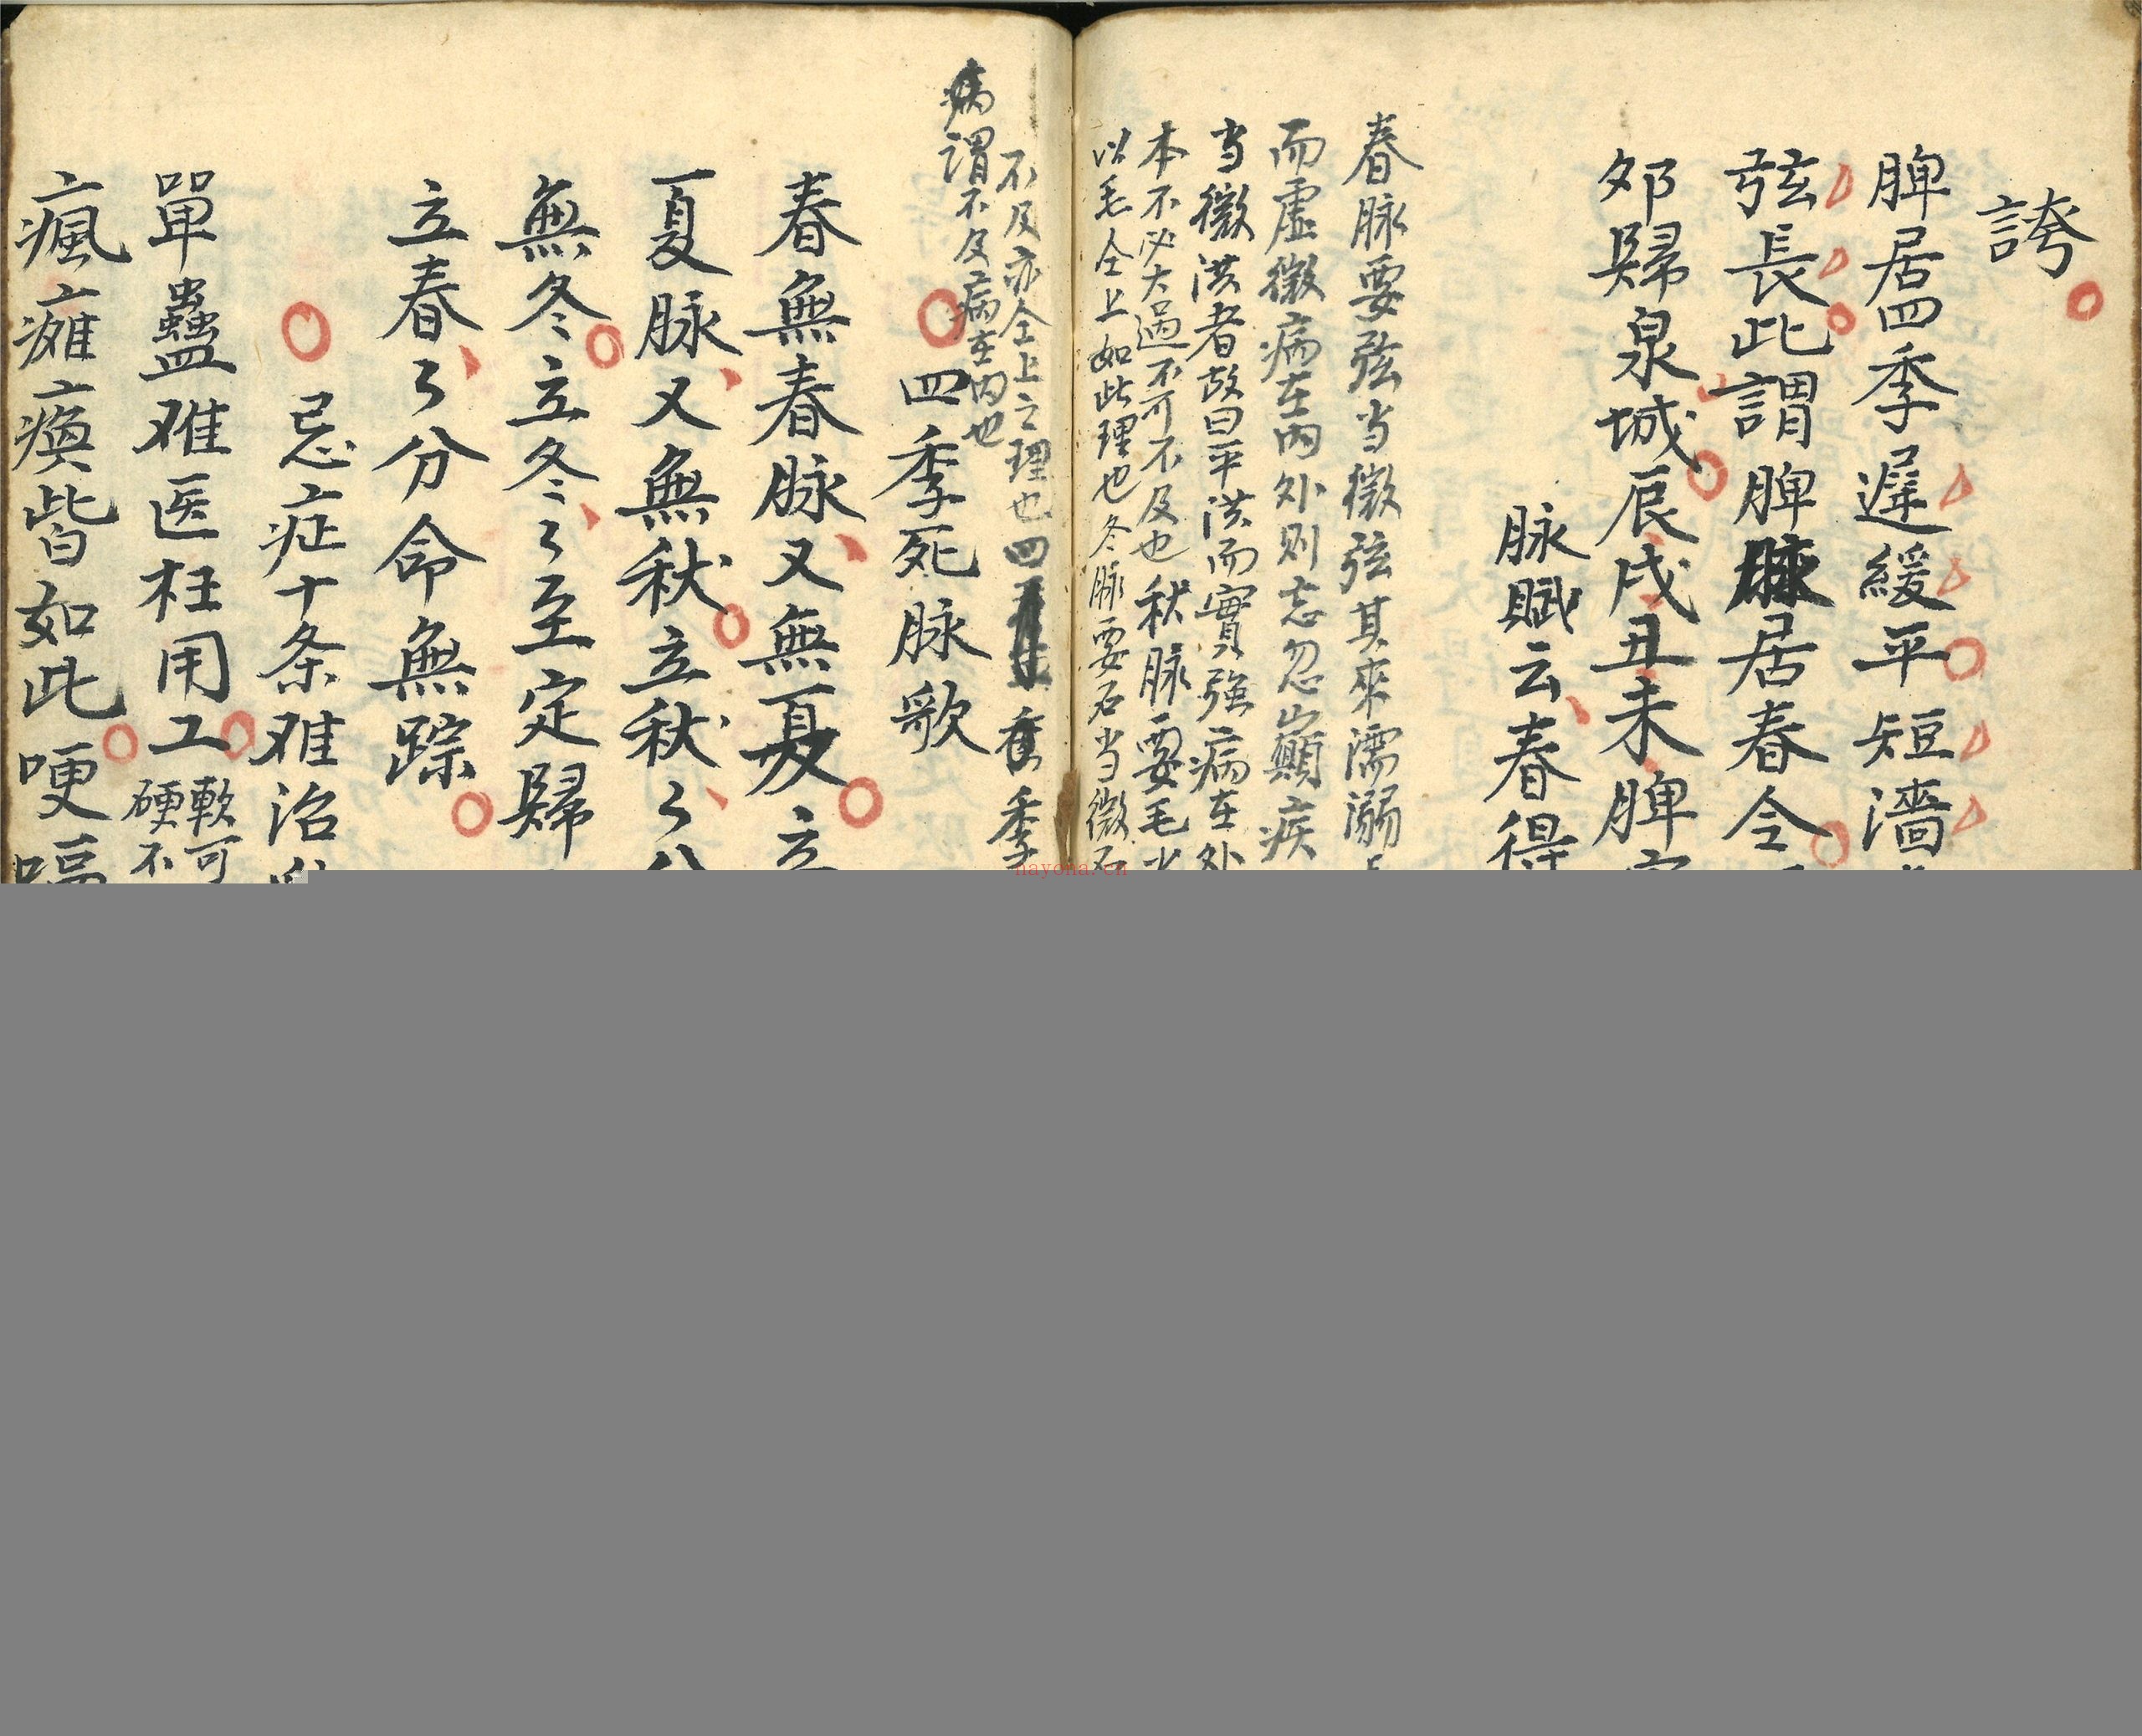 誇
脾居四季遲緩平短濇
弦長此謂脾脉居春令
夘歸泉城辰戌丑未脾
脉賦云春得
春脉要弦当微弦其來濡溺
而虛微病在內外则忘忽巔疾
当微洪者故曰平洪而實強病在外
本不必大過不可不及也秋脉要毛
以毛仝上如此理也冬脉要石当微石
不及亦仝上之理也四季
病謂不及病在内也
四季死脉歌
春無春脉又無夏立
夏脉又無秋立秋〻分
無冬立冬〻至定歸
立春〻分命無踪
忌症十条难治
單蠱难医枉用工軟可硬不
瘋瘫瘓皆如此哽嗝
nayona.cn